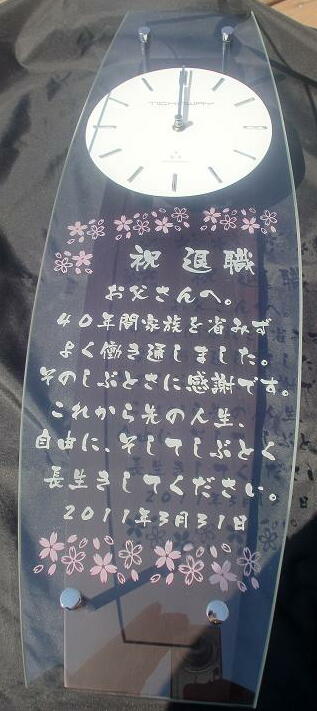 TECHNOWAY
祝 退職
お父さんへ。
40年間家族を省みず
よく働き通しました。
そのしぶとさに感謝です。
これから先の人生、
自由に、そしてしぶとく
長生きしてください。
2011年3月31日